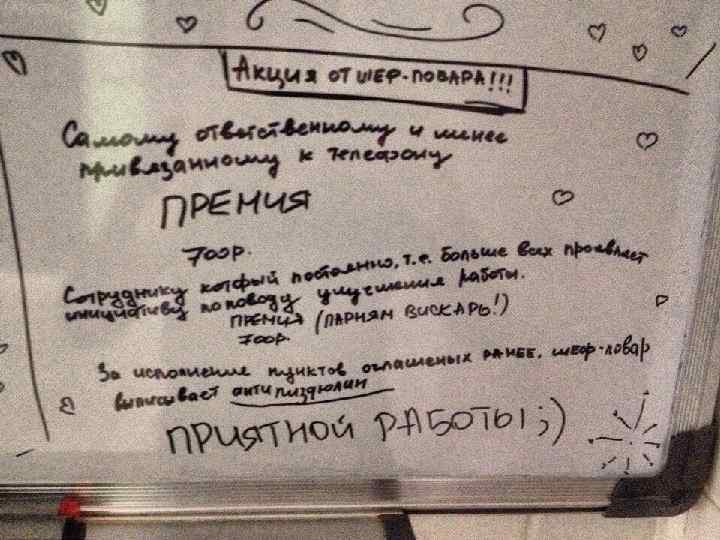 Акция от шеф-повара!!!
Самому ответственному и менее
привязанному к телефону
ПРЕМИЯ
700р.
Сотруднику который постоянно, т.е. больше всех проявляет
инициативу по поводу улучшения работы.
ПРЕМИЯ (ПАРНЯМ ВИСКАРЬ!)
700р.
За исполнение пунктов оглашеных РАНЕЕ, шеф-повар
выписывает антипиздюлин
ПРИЯТНОЙ РАБОТЫ ;)